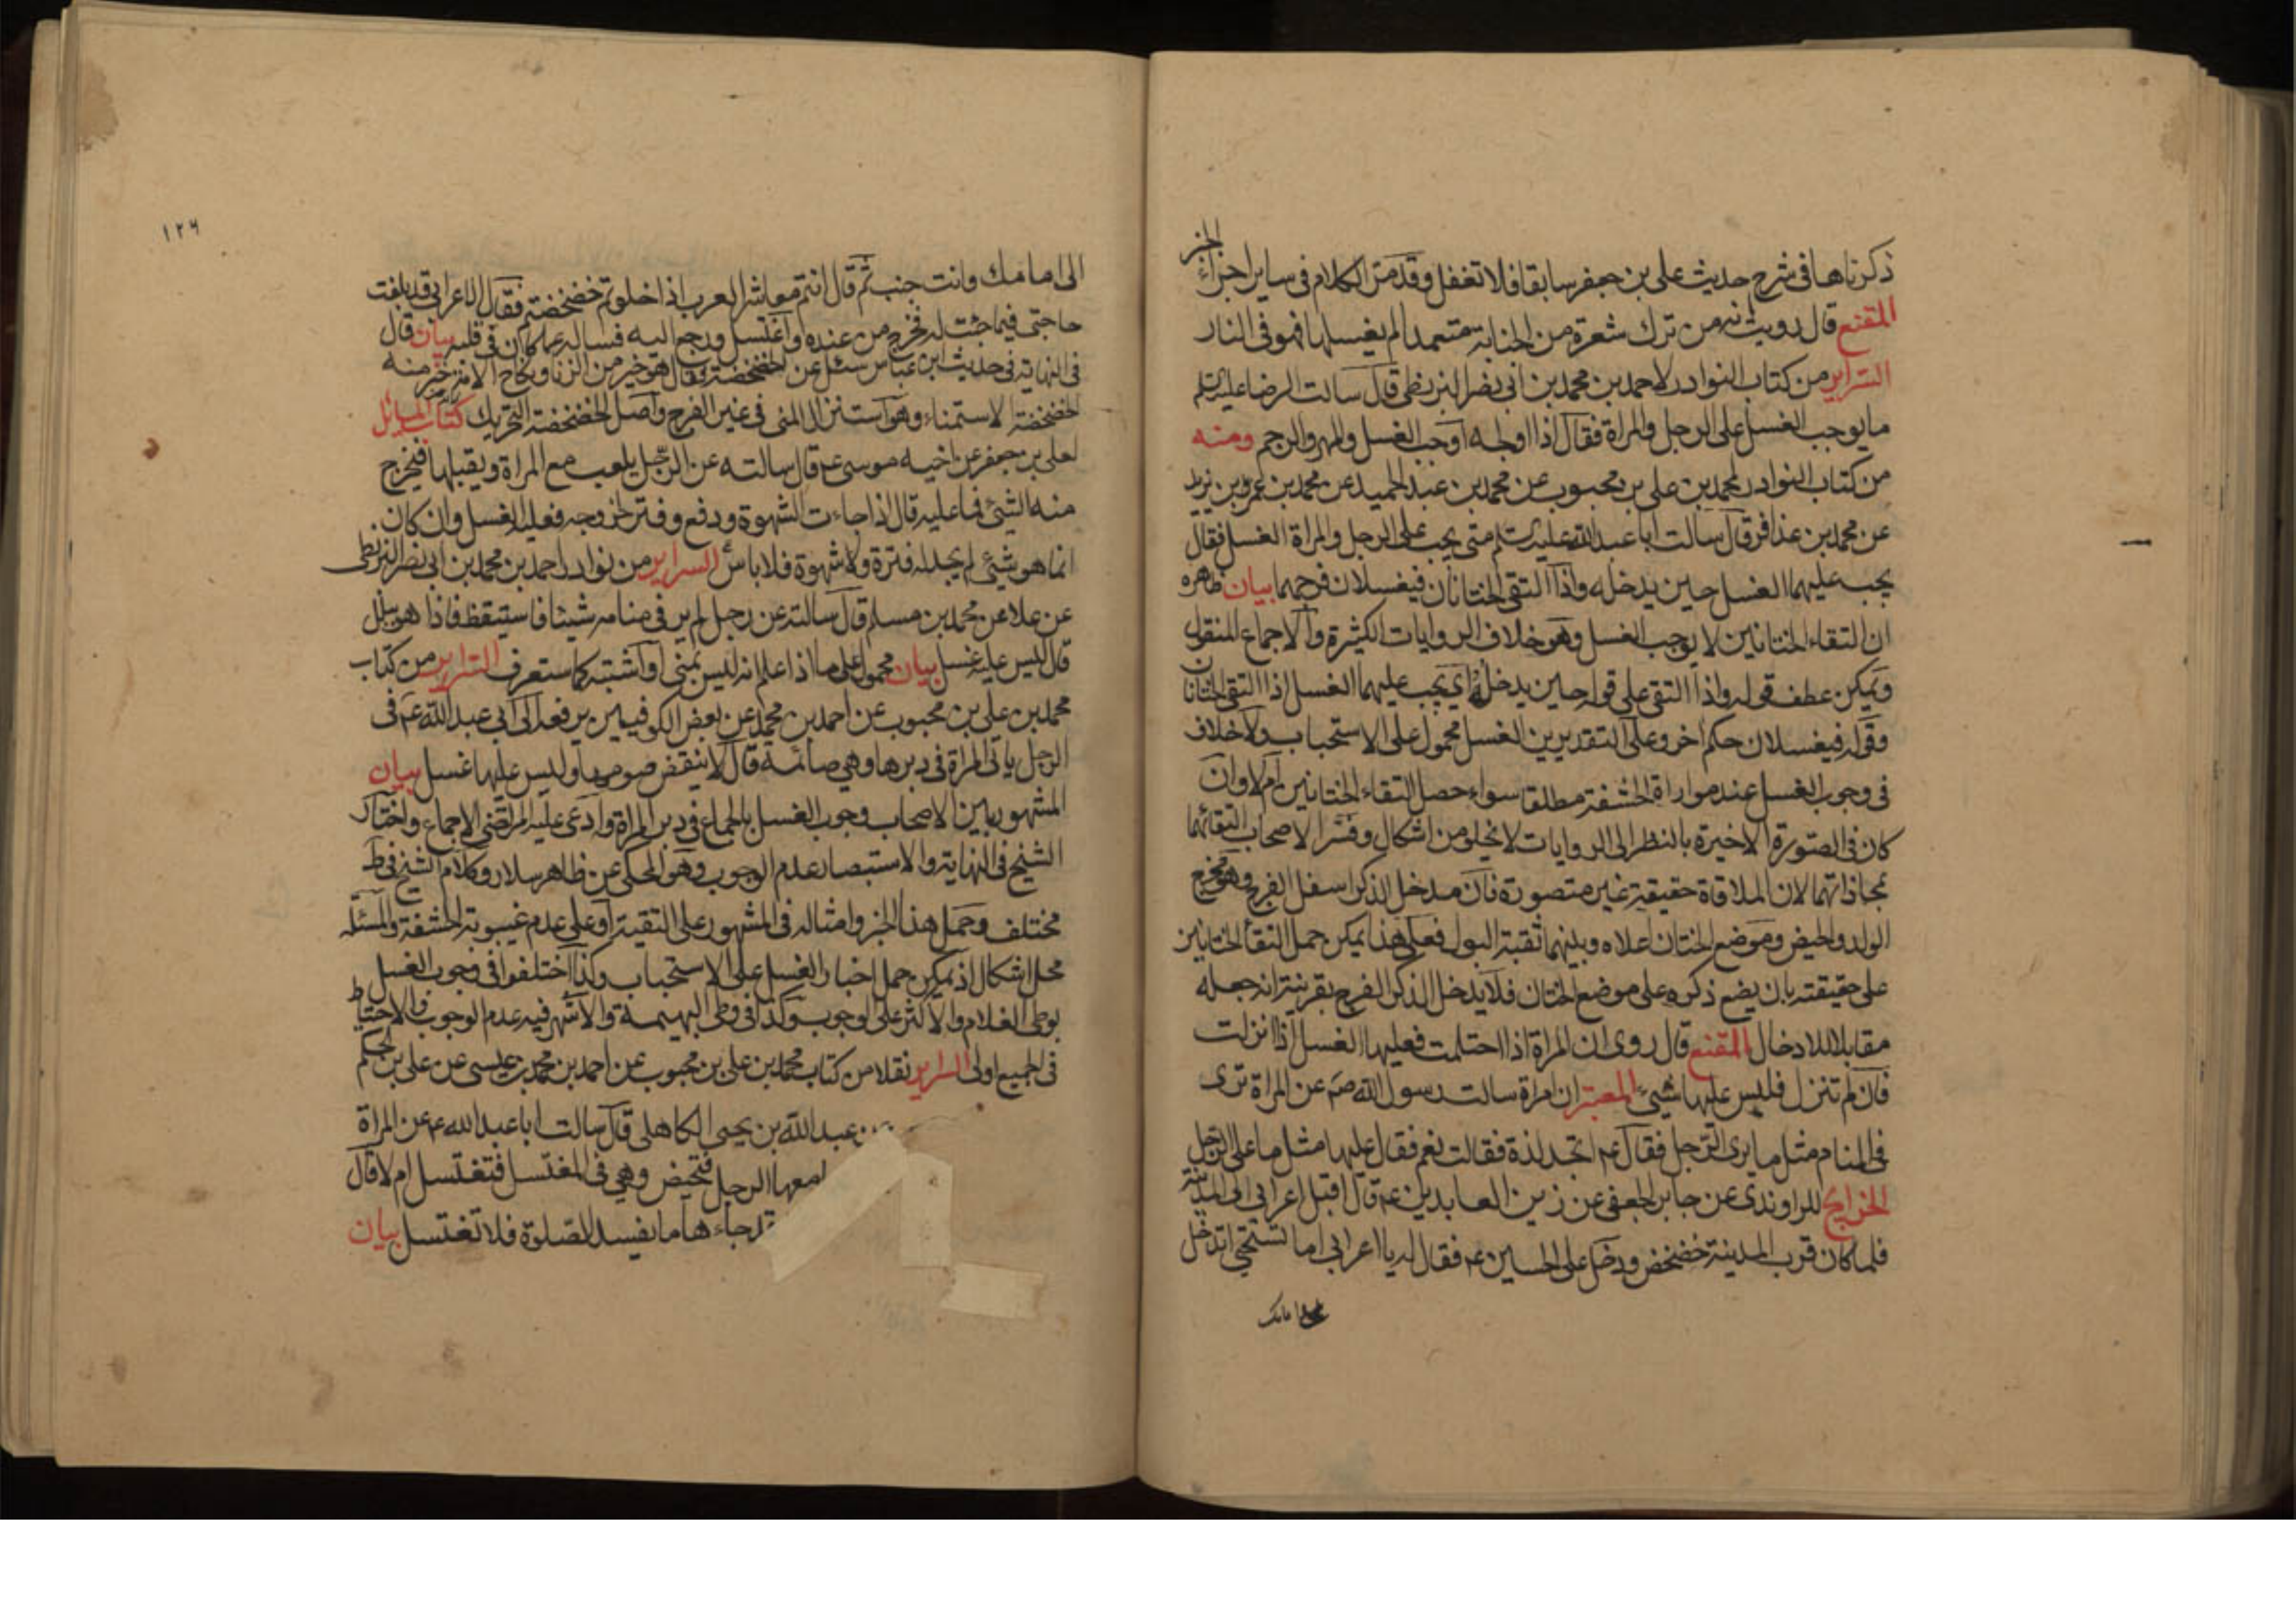 ذكرناها في شرح حديث علي بن جعفر سابقا فلا تغفل وقد مر الكلام في ساير اجزاء الخبر
المقنع قال رويت انه من ترك شعرة من الجنابة متعمدا لم يغسلها فهو في النار
السراير من كتاب النوادر لاحمد بن محمد بن ابي نصر البزنطي قال سالت الرضا عليه السلم
ما يوجب الغسل على الرجل والمراة فقال اذا اولجه اوجب الغسل والمهر والرجم ومنه
من كتاب النوادر لمحمد بن علي بن محبوب عن محمد بن عبد الحميد عن محمد بن عمر بن يزيد
عن محمد بن عذافر قال سالت ابا عبد الله عليه السلم متى يجب على الرجل والمراة الغسل فقال
يجب عليهما الغسل حين يدخله واذا التقى الختانان فيغسلان فرجهما بيان ظاهره
ان التقاء الختانين لا يوجب الغسل وهو خلاف الروايات الكثيرة والاجماع المنقول
ويمكن عطف قوله واذا التقى على قوله حين يدخله اي يجب عليهما الغسل اذا التقى الختانان
وقوله فيغسلان حكم اخر وعلى التقديرين الغسل محمول على الاستحباب ولا خلاف
في وجوب الغسل عند مواراة الحشفة مطلقا سواء حصل التقاء الختانين ام لا وان
كان في الصورة الاخيرة بالنظر الى الروايات لا يخلو من اشكال وفسر الاصحاب التقائهما
بمحاذاتهما لان الملاقاة حقيقة غير متصورة فان مدخل الذكر اسفل الفرج وهو مخرج
الولد والحيض وموضع الختان اعلاه وبينهما ثقبة البول فعلى هذا يمكن حمل التقاء الختانين
على حقيقته بان يضع ذكره على موضع الختان فلا يدخل الذكر الفرج بقرينة انه جعله
مقابلا للادخال المقنع قال روي ان المراة اذا احتلمت فعليها الغسل اذا انزلت
فان لم تنزل فليس عليها شيئ المعتبر ان امراة سالت رسول الله ص عن المراة ترى
في المنام مثل ما يرى الرجل فقال ع اتجد لذة فقالت نعم فقال عليها مثل ما على الرجل
الخرايج للراوندي عن جابر الجعفي عن زين العابدين ع قال اقبل اعرابي الى المدينة
فلما كان قرب المدينة خضخض ودخل على الحسين ع فقال له يا اعرابي اما تستحي اتدخل
امامك
١٢٦
الى امامك وانت جنب ثم قال انتم معاشر العرب اذا خلوتم خضخضتم فقال الاعرابي قد بلغت
حاجتي فيما جئت له فخرج من عنده واغتسل ورجع اليه فساله عما كان في قلبه بيان قال
في النهاية في حديث ابن عباس سئل عن الخضخضة فقال هو خير من الزنا ونكاح الامة خير منه
الخضخضة الاستمناء وهو استنزال المني في غير الفرج واصل الخضخضة التحريك كتاب المسائل
لعلي بن جعفر عن اخيه موسى ع قال سالته عن الرجل يلعب مع المراة ويقبلها فيخرج
منه الشئ فما عليه قال اذا جاءت الشهوة ودفع وفتر لخروجه فعليه الغسل وان كان
انما هو شئ لم يجد له فترة ولا شهوة فلا باس السراير من نوادر احمد بن محمد بن ابي نصر البزنطي
عن علا عن محمد بن مسلم قال سالته عن رجل لم ير في منامه شيئا فاستيقظ فاذا هو ببلل
قال ليس عليه غسل بيان محمول على ما اذا علم انه ليس بمني او اشتبه كما ستعرف السراير من كتاب
محمد بن علي بن محبوب عن احمد بن محمد عن بعض الكوفيين يرفعه الى ابي عبد الله ع في
الرجل ياتي المراة في دبرها وهي صائمة قال لا ينقض صومها وليس عليها غسل بيان
المشهور بين الاصحاب وجوب الغسل بالجماع في دبر المراة وادعى عليه المرتضى الاجماع واختار
الشيخ في النهاية والاستبصار عدم الوجوب وهو المحكي عن ظاهر سلار وكلام الشيخ في ط
مختلف وحمل هذا الخبر وامثاله في المشهور على التقية او على عدم غيبوبة الحشفة والمسئلة
محل اشكال اذ يمكن حمل اخبار الغسل على الاستحباب وكذا اختلفوا في وجوب الغسل
بوطي الغلام والاكثر على الوجوب وكذا في وطي البهيمة والاشهر فيه عدم الوجوب والاحتياط
في الجميع اولى السراير نقلا من كتاب محمد بن علي بن محبوب عن احمد بن محمد بن عيسى عن علي بن الحكم
عن عبد الله بن يحيى الكاهلي قال سالت ابا عبد الله ع عن المراة
امعها الرجل فتحيض وهي في المغتسل فتغتسل ام لا قال
قد جاءها ما يفسد الصلوة فلا تغتسل بيان